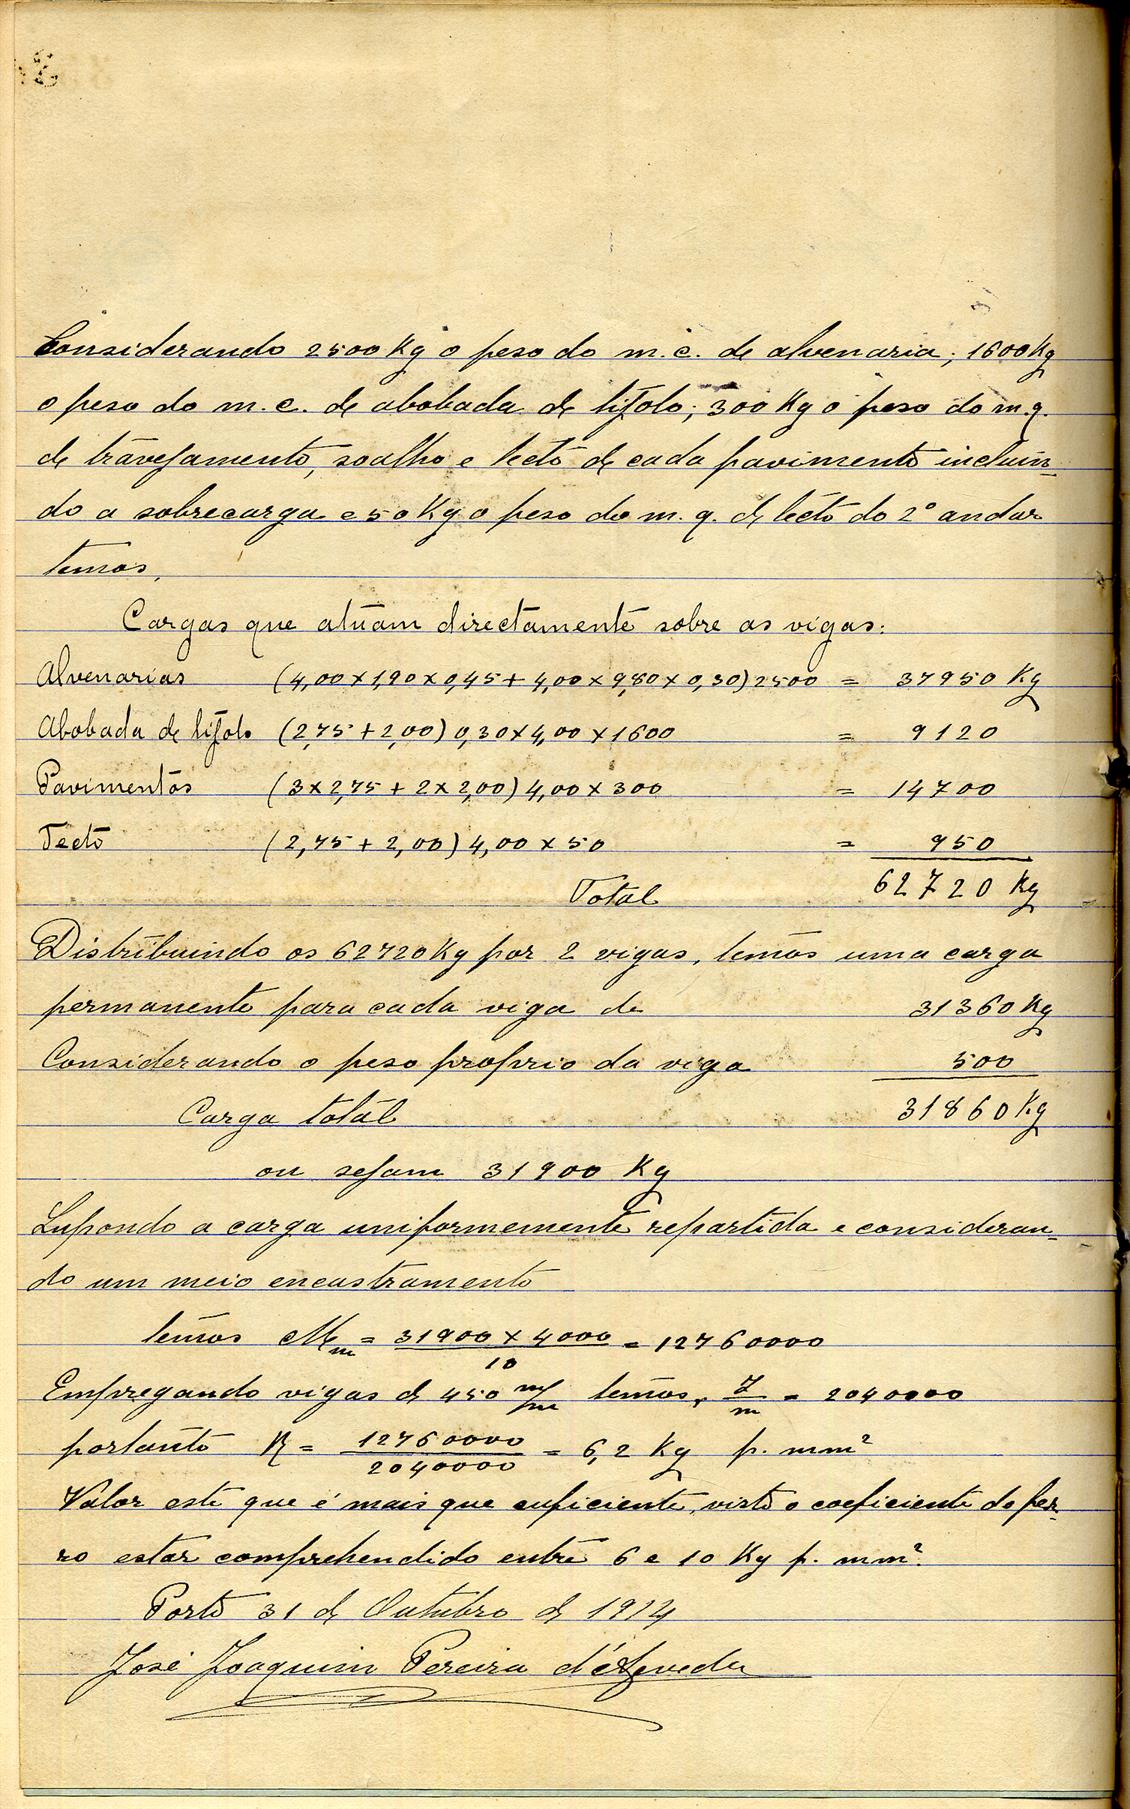 Considerando 2500 Kg o peso do m. c. de alvenaria; 1600 Kg
o peso do m. c. de abobada de tijolo; 300 Kg o peso do m. q.
de travejamento, soalho e tecto de cada pavimento incluin-
do a sobrecarga e 50 Kg o peso do m. q. de técto do 2º andar
temos,
Cargas que atúam directamente sobre as vigas:
Alvenarias (4,00 x 1,90 x 0,45 + 4,00 x 9,80 x 0,30) 2500 = 37950 Kg
Abobada de tijolo (2,75 + 2,00) 0,30 x 4,00 x 1600 = 9120
Pavimentos (3 x 2,75 + 2 x 2,00) 4,00 x 300 = 14700
Tecto (2,75 + 2,00) 4,00 x 50 = 950
Total 62720 Kg
Distribuindo os 62720 Kg por 2 vigas, temos uma carga
permanente para cada viga de 31360 Kg
Considerando o peso proprio da viga 500
Carga total 31860 Kg
ou sejam 31900 Kg
Supondo a carga uniformemente repartida e consideran-
do um meio encastramento
temos Mm = 31900 x 4000 / 10 = 12760000
Empregando vigas de 450 m/m temos, I/m = 2040000
portanto R = 12760000 / 2040000 = 6,2 Kg p. mm²
Valor este que é mais que suficiente, visto o coeficiente do fer-
ro estar comprehendido entre 6 e 10 Kg p. mm².
Porto 31 de Outubro de 1914
José Joaquim Pereira d'Azevedo